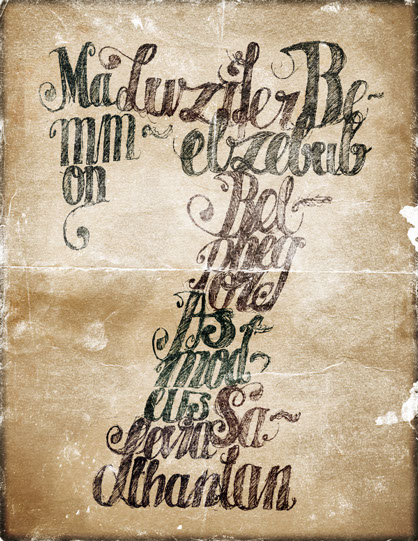 Ma Luzifer Be~
mm~ elzebub
on
Bel~
pheg
or
As~
mod~
eus Sa~
Levia
than tan